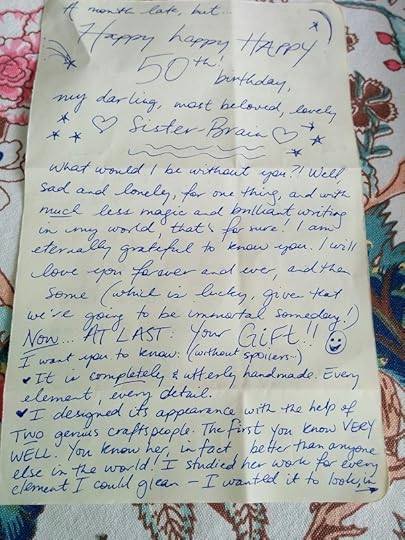 A month late, but...
Happy happy HAPPY
50th! birthday,
my darling, most beloved, lovely
Sister-Brain
What would I be without you?! Well,
sad and lonely, for one thing, and with
much less magic and brilliant writing
in my world, that's for sure! I am
eternally grateful to know you. I will
love you forever and ever, and then
some (which is lucky, given that
we're going to be immortal someday!)
Now... AT LAST: Your GIFT!!
I want you to know: (without spoilers~)
✓ It is completely & utterly handmade. Every
element, every detail.
✓ I designed its appearance with the help of
TWO genius craftspeople. The first you know VERY
WELL. You know her, in fact, better than anyone
else in the world! I studied her work for every
element I could glean – I wanted it to look, in →